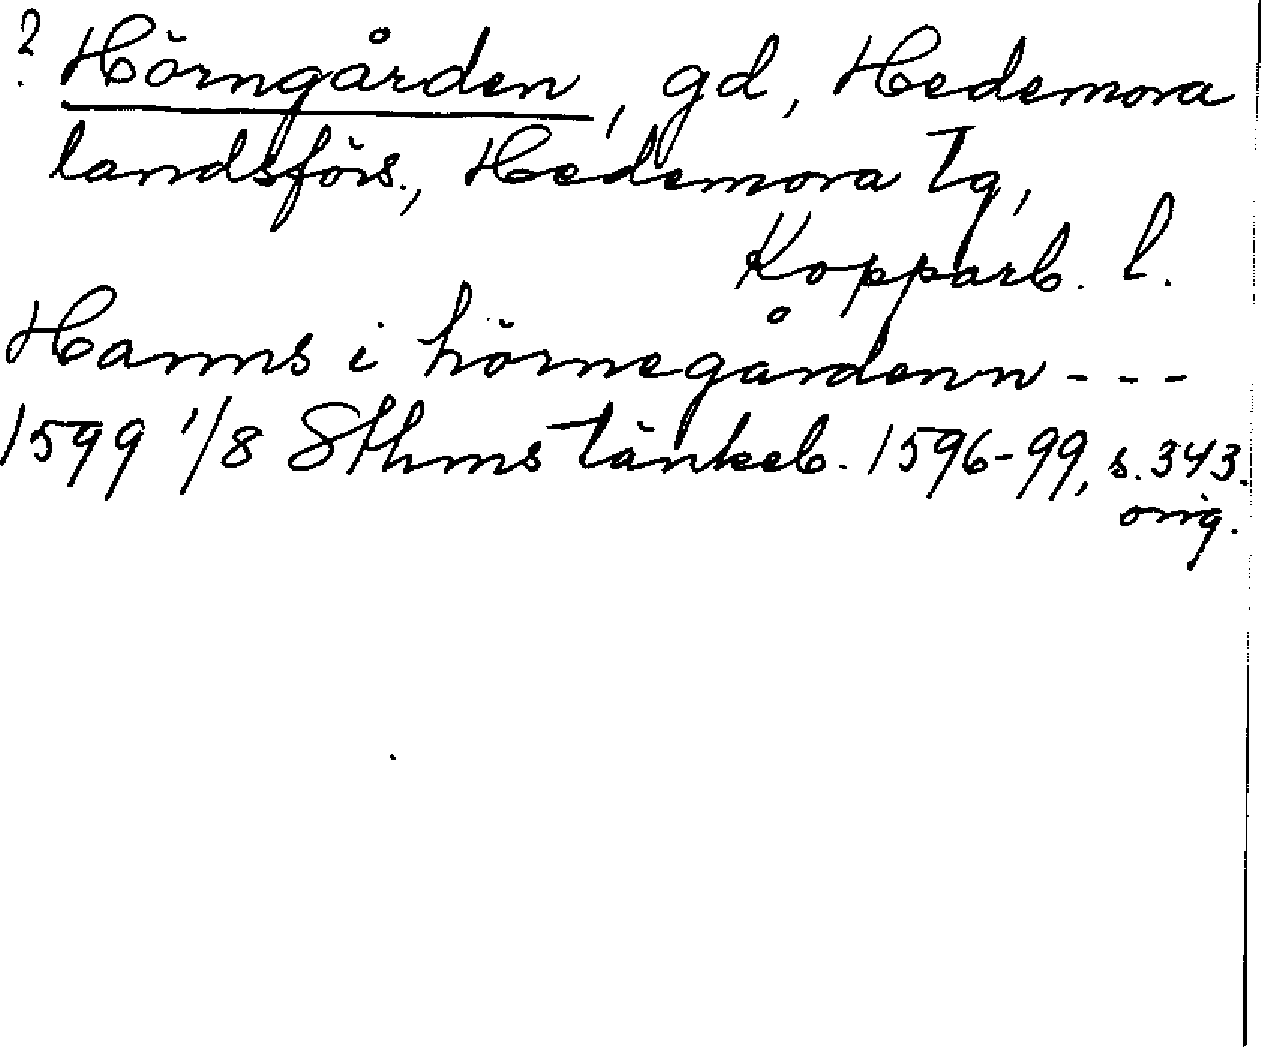 ? Hörngården, gd, Hedemora
landsförs., Hedemora tg,
Kopparb. l.
Hanns i hörnegårdenn - - -
1599 1/8 Sthms tänkeb. 1596-99, s. 343.
orig.